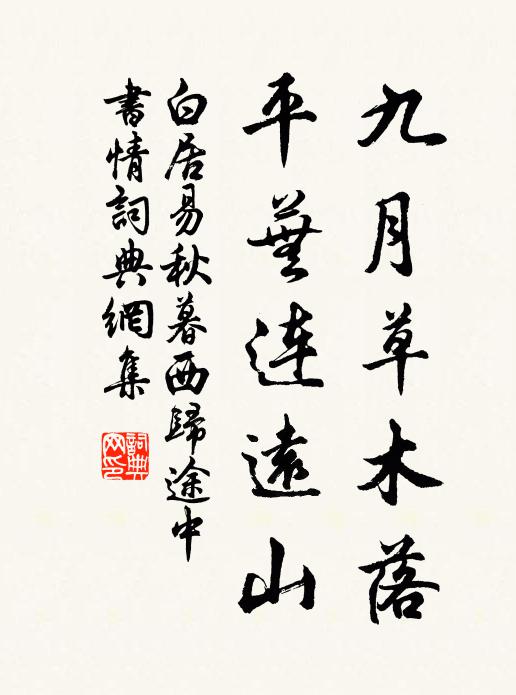 九月草木落
平蕪連遠山
白居易秋暮西歸途中
書情詞典網集
詞典
网印